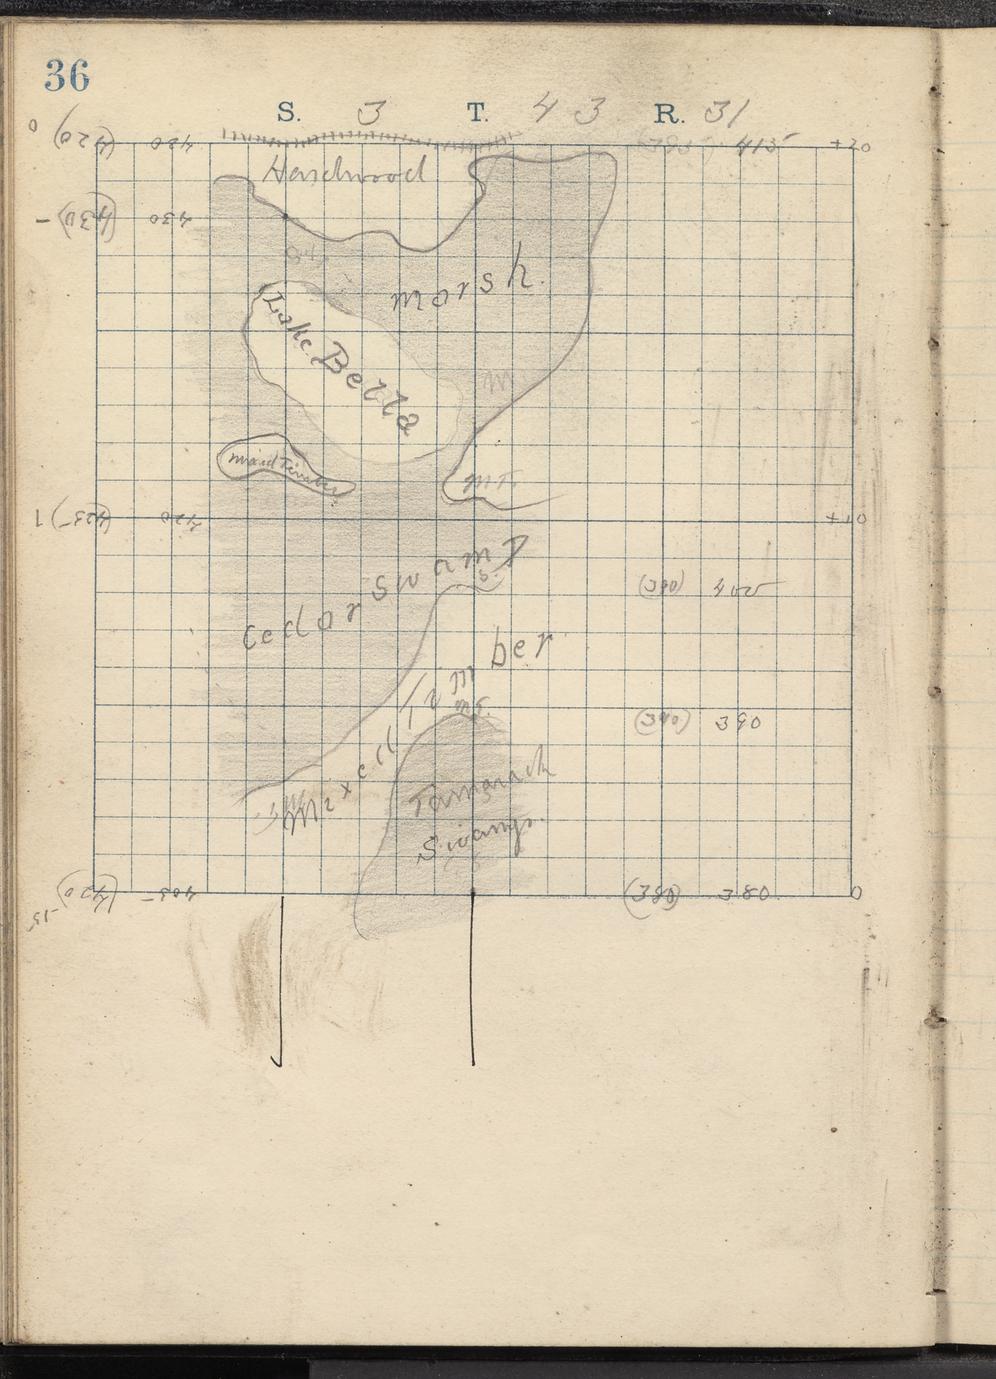 36
S. 3 T. 43 R. 31
0 (420) 420 (385) 415 +20
Hardwood
(430) 430
marsh.
Lake Bella
M
mixed Timber
M.T.
1 (423) 420 +10
cedar swamp
S.
(390) 400
Mixed Timber
M.T.
(390) 390
Tamarack
Swamp.
-15 (420) 405 (380) 380 0